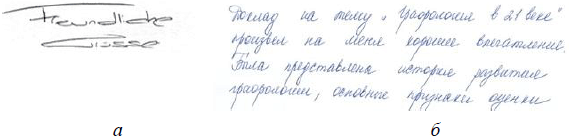 Freundliche
Grüsse
Доклад на тему „Графология в 21 веке“
произвел на меня хорошее впечатление.
Была представлена история развития
графологии, основные признаки оценки
а
б